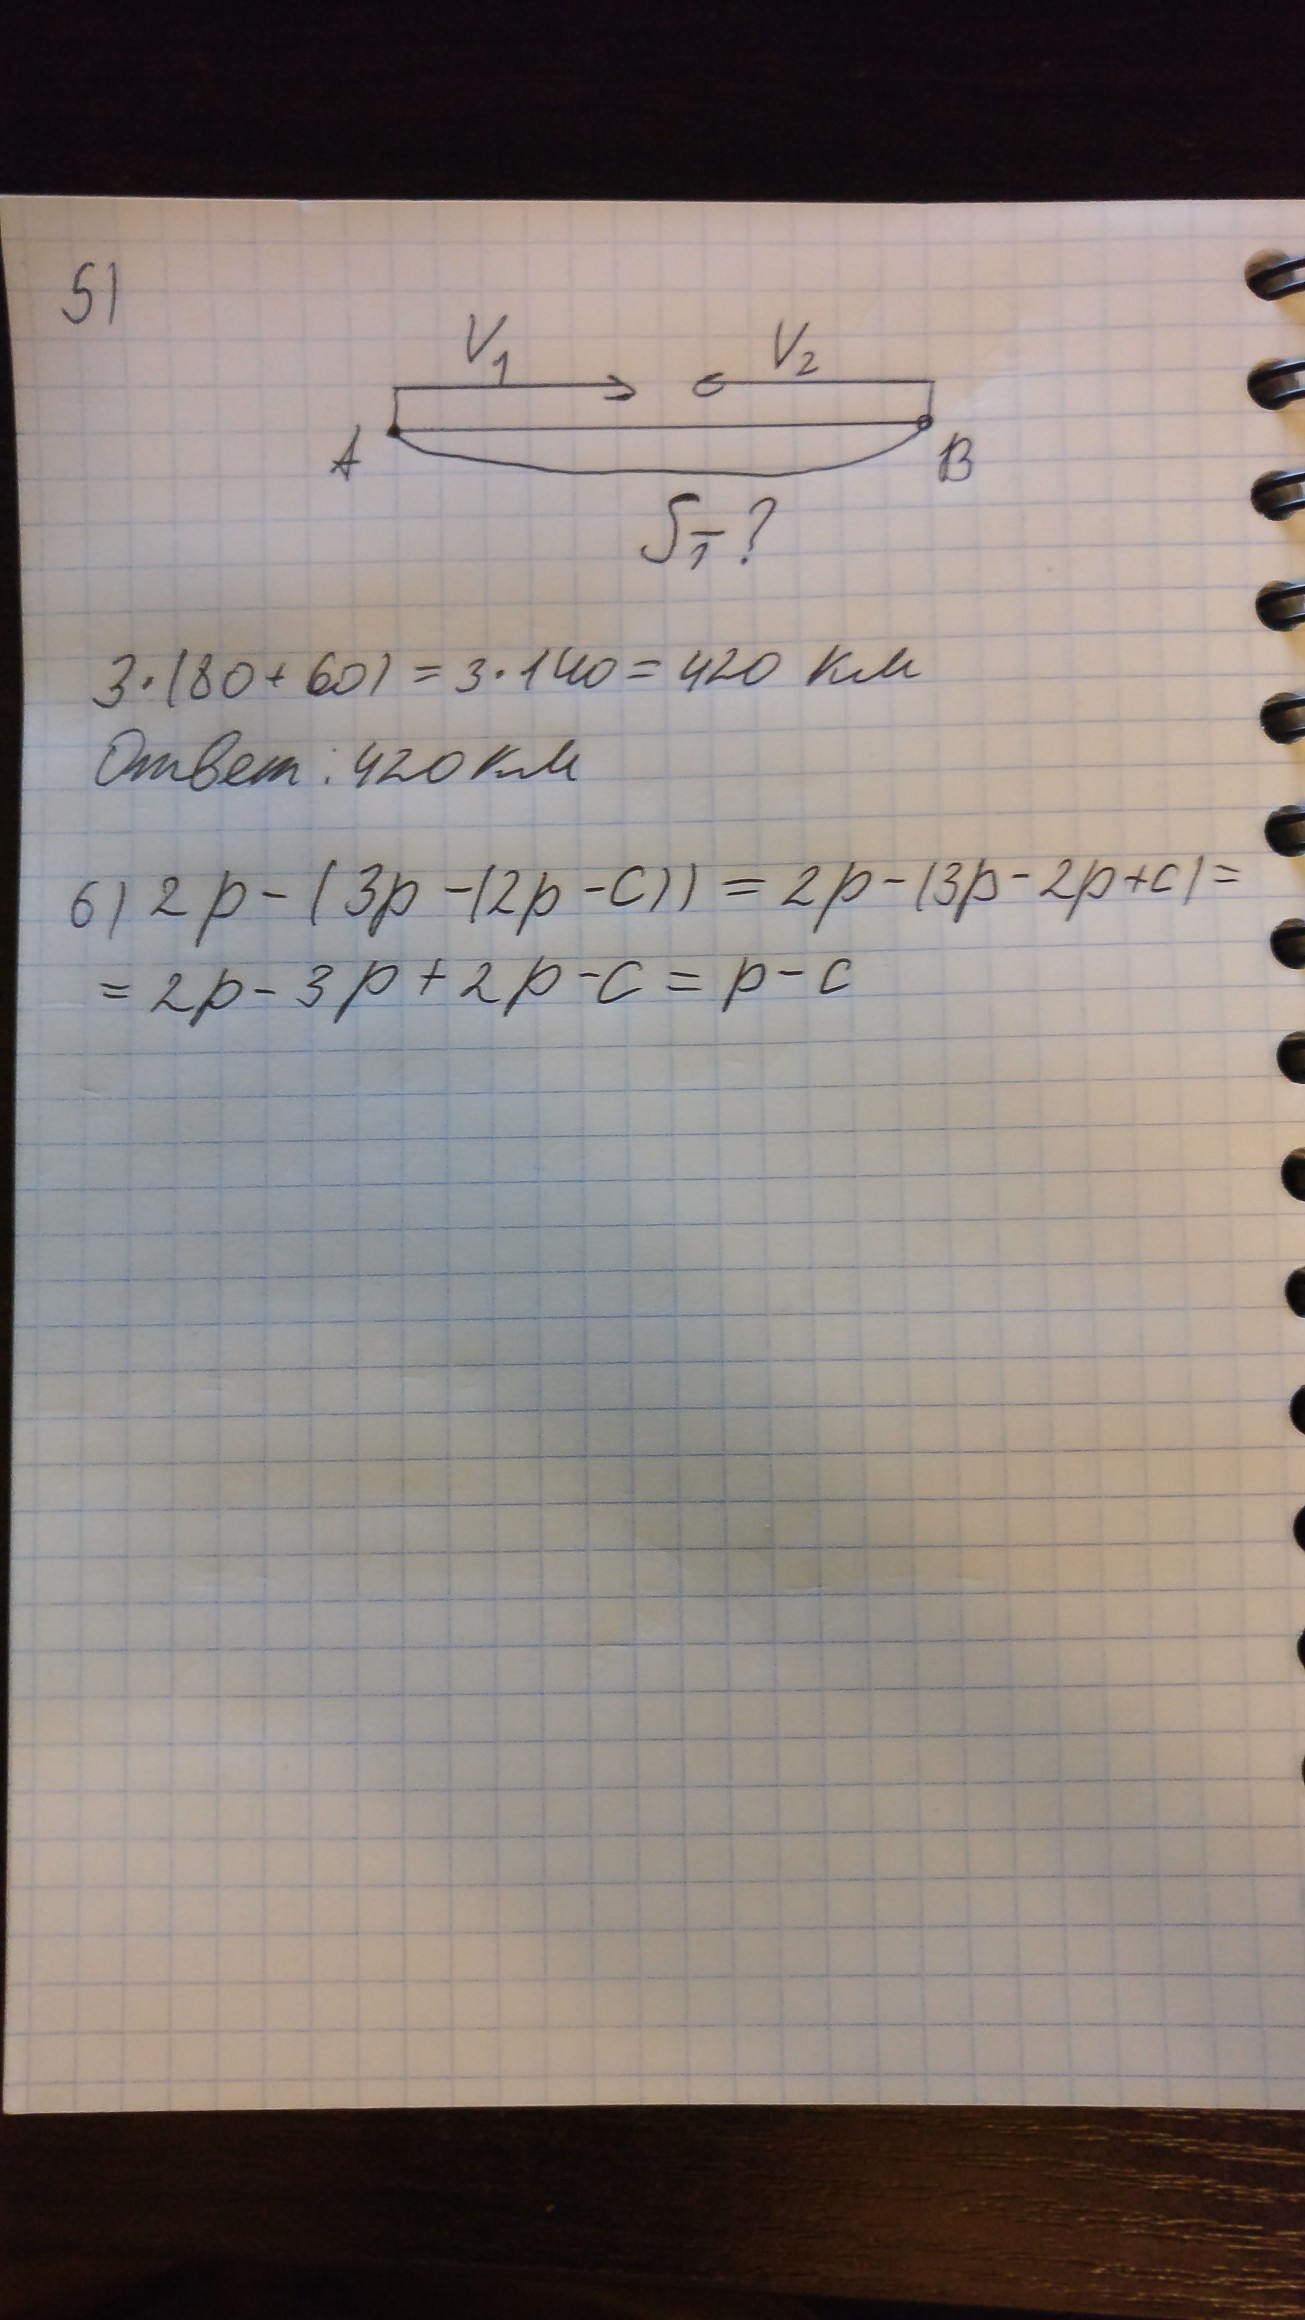 5)
V₁ V₂
A B
S₁-?
3·(80+60)=3·140=420 км
Ответ: 420 км
6) 2p-(3p-(2p-c))=2p-(3p-2p+c)=
=2p-3p+2p-c=p-c